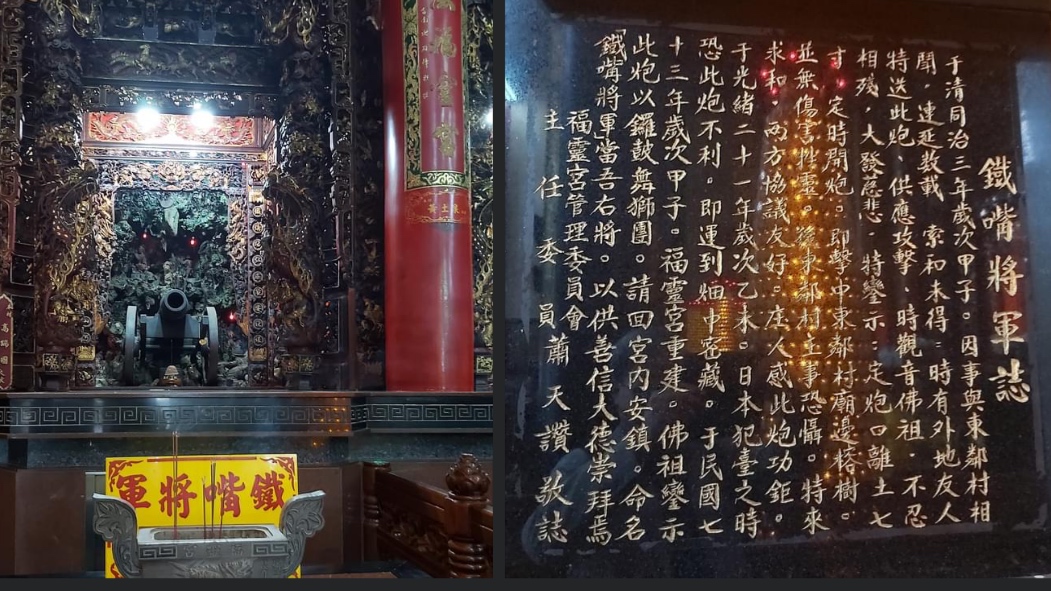 鐵嘴將軍
鐵嘴將軍誌
于清同治三年歲次甲子。因事與東鄰村相
鬧，連延数載　索和未得：時有外地友人
特送此炮、供應攻擊、時觀音佛祖．不忍
相残，大發慈悲．特鑾示：定炮口離土七
寸．定時開炮。即擊中東鄰村廟邊榕樹。
並無傷害性靈。後東鄰村主事恐懾。特來
求和．两方協議友好。庄人感此炮功鉅。
于光緒二十一年歲次乙未。日本犯臺之時
恐此炮不利。即運到畑中密藏。于民國七
十三年歲次甲子。福靈宮重建。佛祖鑾示
此炮以鑼鼓舞獅團。請回宮内安鎮。命名
「鐵嘴將軍」當吾右將。以供善信大德崇拜焉
福靈宮管理委員會
主任委員蕭天讚敬誌